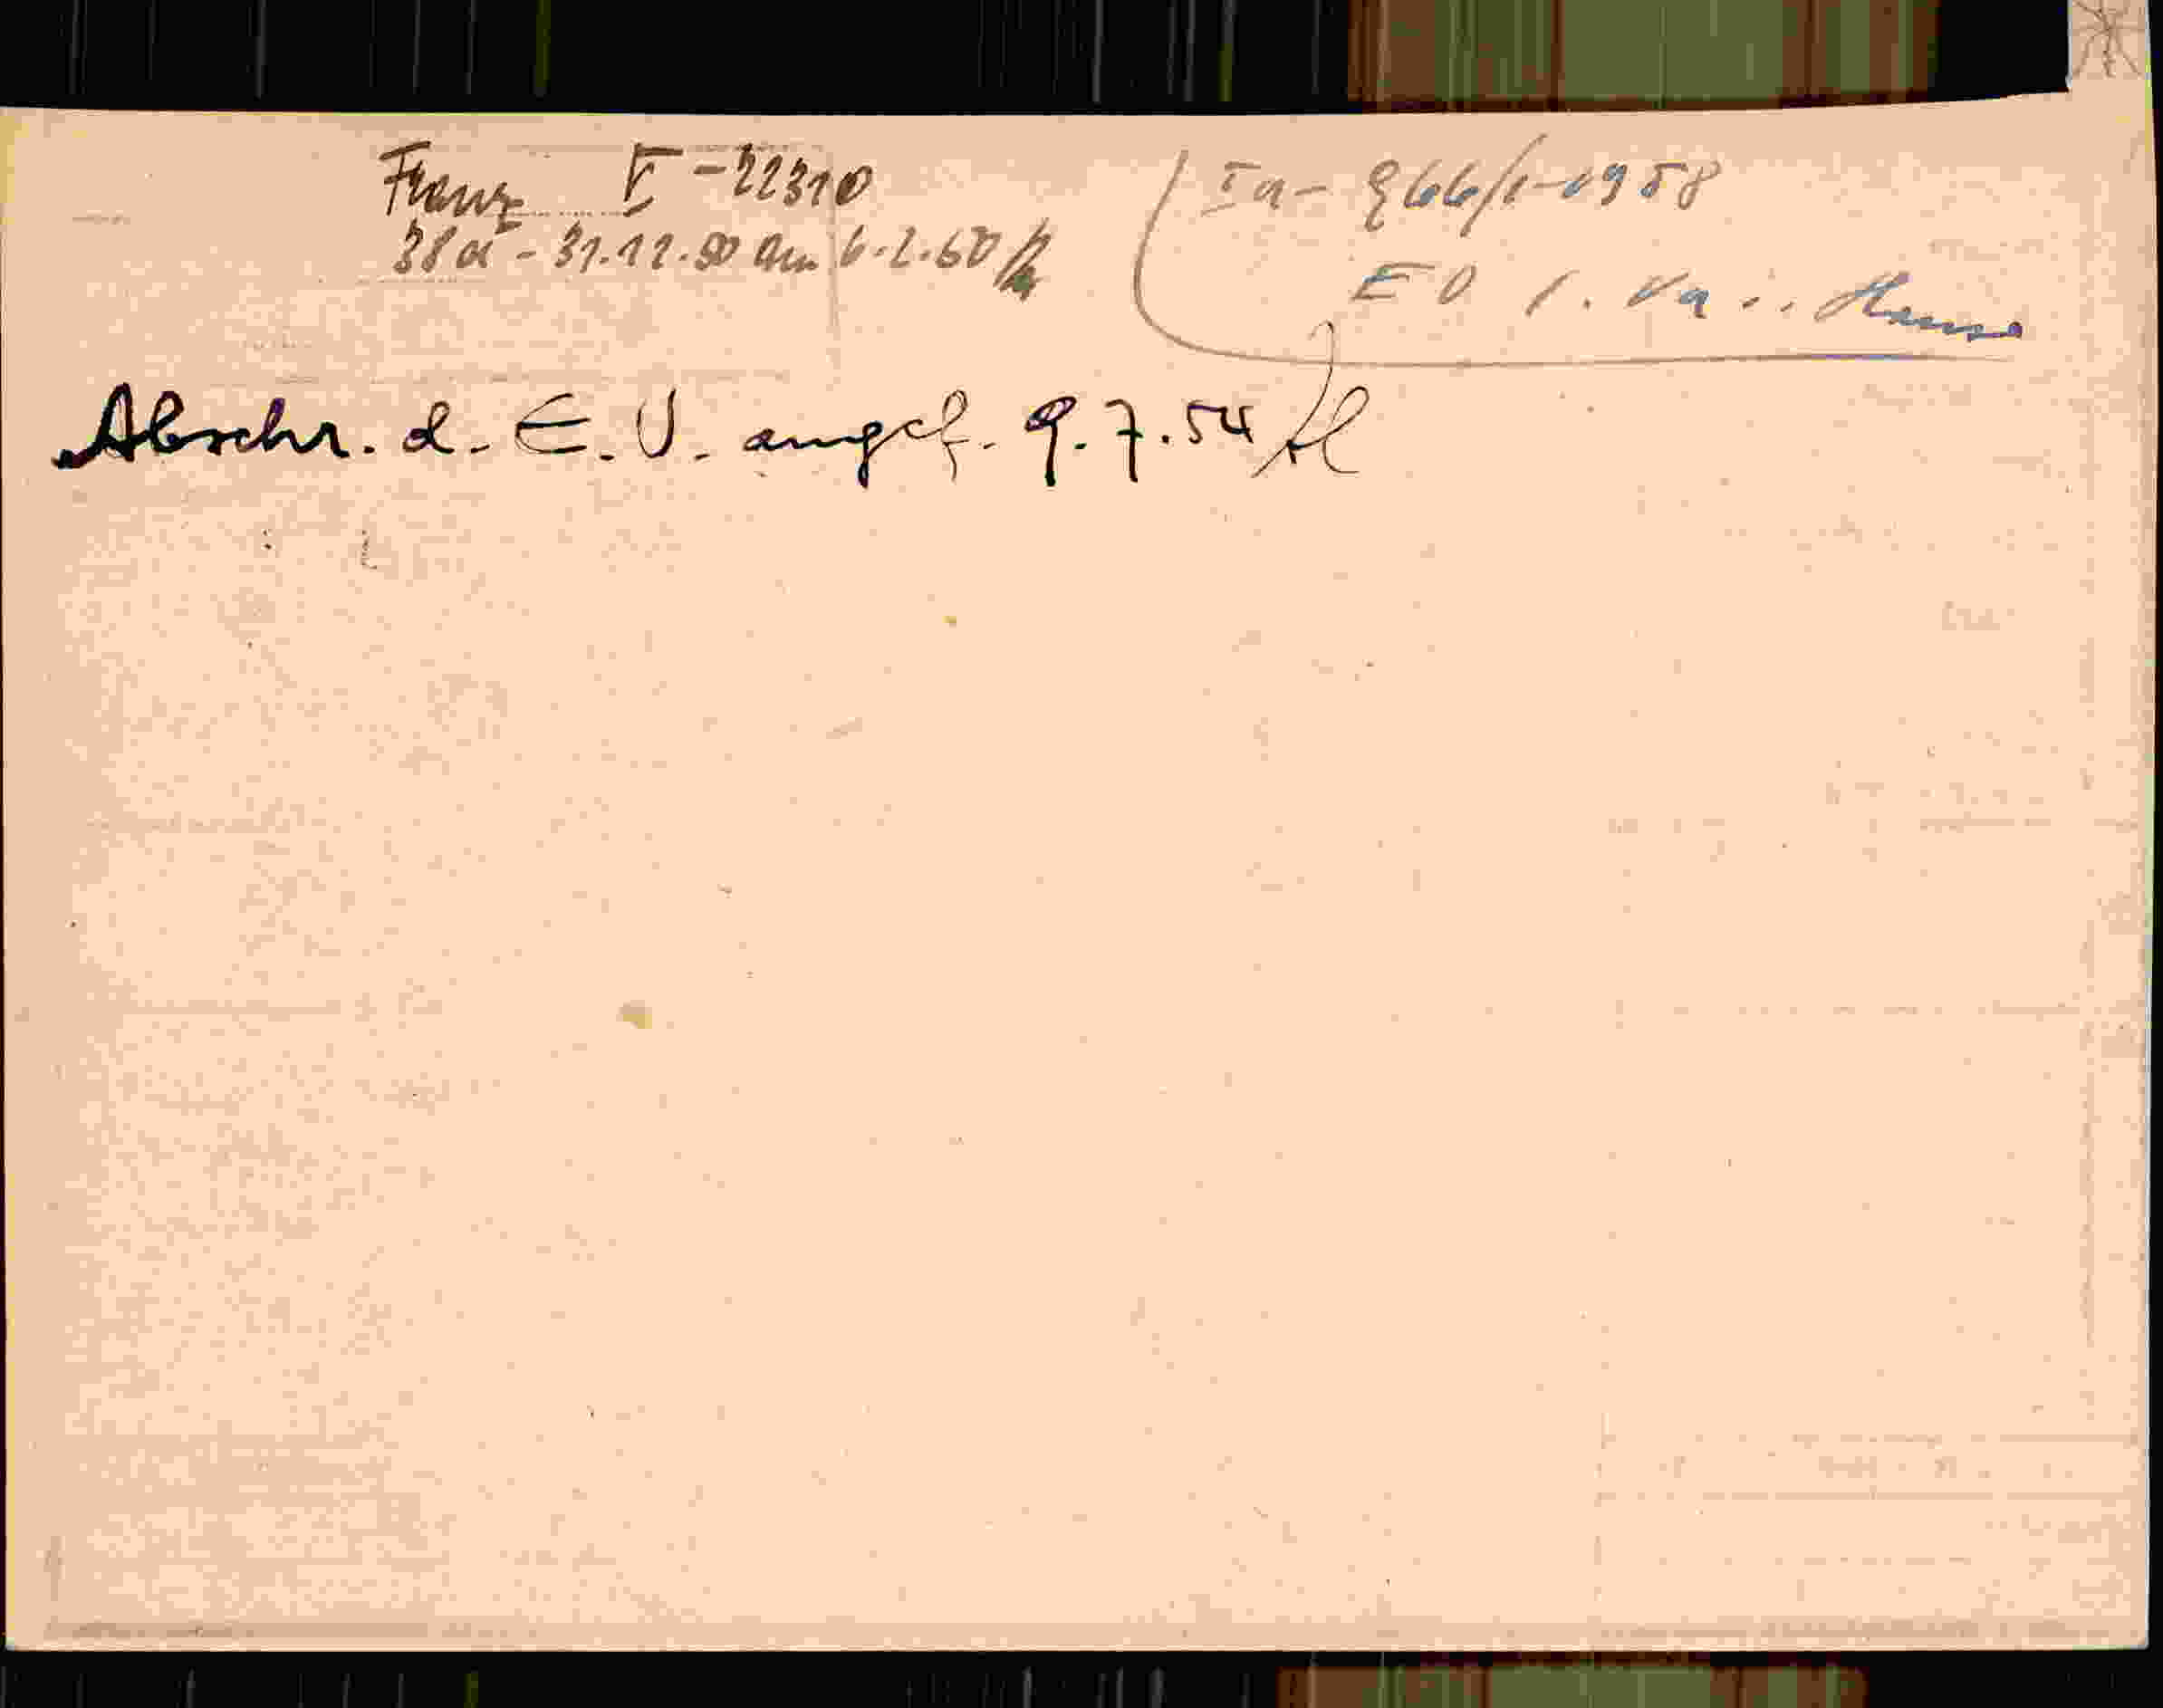 Franz V-22310
38a - 31.12.50 am 6.2.60
Ia- 866/1-1958
E O 1.
Abschr. d. E. V. angef. 9.7.54